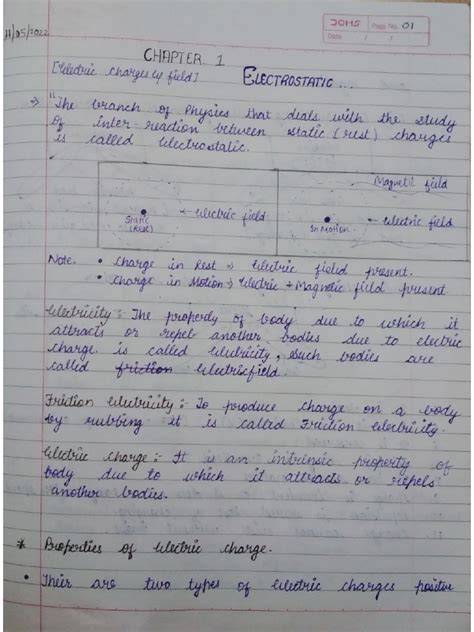 11/05/2022
JOMS Page No. 01
Date / /
CHAPTER 1
[Electric charges & field] ELECTROSTATIC ...
"The branch of Physics that deals with the study
of inter-reaction between static (rest) charges
is called electrostatic.
Magnetic field
Static (Rest) electric field
In Motion electric field
Note. • charge in Rest → Electric field present.
• charge in Motion → Electric + Magnetic field present
Electricity :- The property of body due to which it
attracts or repel another bodies due to electric
charge is called electricity, such bodies are
called friction electricfield.
Friction electricity :- To produce charge on a body
by rubbing it is called Friction electricity.
Electric charge :- It is an intrinsic property of
body due to which it attracts or repels
another bodies.
* Properties of electric charge.
• Their are two types of electric charges positive